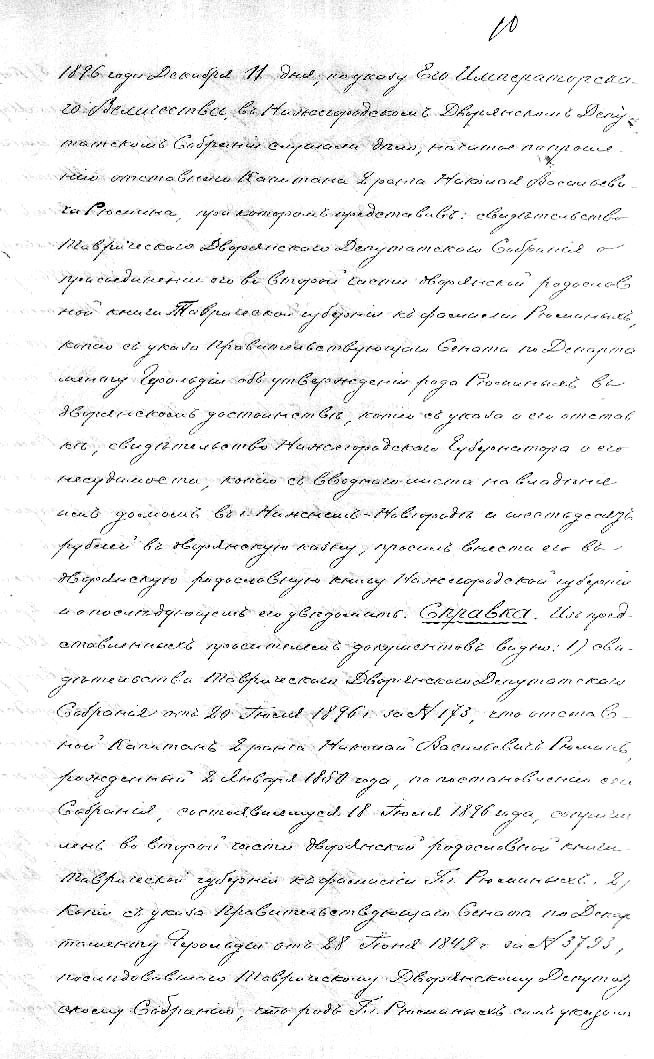 10
1896 года Декабря 11 дня, по указу Его Императорска-
го Величества въ Нижегородскомъ Дворянскомъ Депу-
татскомъ Собраніи слушали дѣло, начатое по проше-
нію отставного Капитана 2 ранга Николая Васильеви-
ча Рюмина, при которомъ представилъ: свидѣтельство
Таврическаго Дворянскаго Депутатскаго Собранія о
присоединеніи его во второй части дворянской родослов
ной книги Таврической губерніи къ фамиліи Рюминыхъ,
копію съ указа Правительствующаго Сената по Департа
менту Герольдіи объ утвержденіи рода Рюминыхъ въ
дворянскомъ достоинствѣ, копію съ указа о его отстав
кѣ, свидѣтельство Нижегородскаго Губернатора о его
несудимости, копію съ вводнаго листа на владѣніе
имъ домомъ въ г. Нижнемъ-Новгородѣ и шестьдесятъ
рублей въ дворянскую казну, просилъ внести его въ
дворянскую родословную книгу Нижегородской губерніи
и о послѣдующемъ его увѣдомить. Справка. Изъ пред-
ставленныхъ просителемъ документовъ видно: 1) сви-
дѣтельства Таврическаго Дворянскаго Депутатскаго
Собранія отъ 20 Іюля 1896 г. за № 173, что отстав-
ной Капитанъ 2 ранга Николай Васильевичъ Рюминъ,
рожденный 2 Января 1850 года, по постановленію сего
Собранія, состоявшемуся 18 Іюля 1896 года, сопричи
ленъ во второй части дворянской родословной книги
Таврической губерніи къ фамиліи Гг. Рюминыхъ. 2)
Копіи съ указа Правительствующаго Сената по Депар
таменту Герольдіи отъ 28 Іюня 1849 г. за № 3793,
послѣдовавшаго Таврическому Дворянскому Депутат
скому Собранію, что родъ Гг. Рюминыхъ симъ указомъ